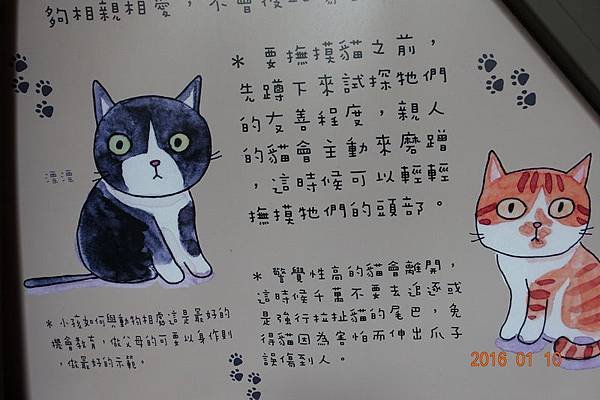 夠相親相愛，不會
* 要撫摸貓之前，
先蹲下來試探牠們
的友善程度，親人
的貓會主動來磨蹭
，這時候可以輕輕
撫摸牠們的頭部。
漂漂
* 警覺性高的貓會離開，
這時候千萬不要去追逐或
是強行拉扯貓的尾巴，免
得貓因為害怕而伸出爪子
誤傷到人。
* 小孩如何與動物相處這是最好的
機會教育，做父母的可要以身作則
，做最好的示範。
2016 01 10